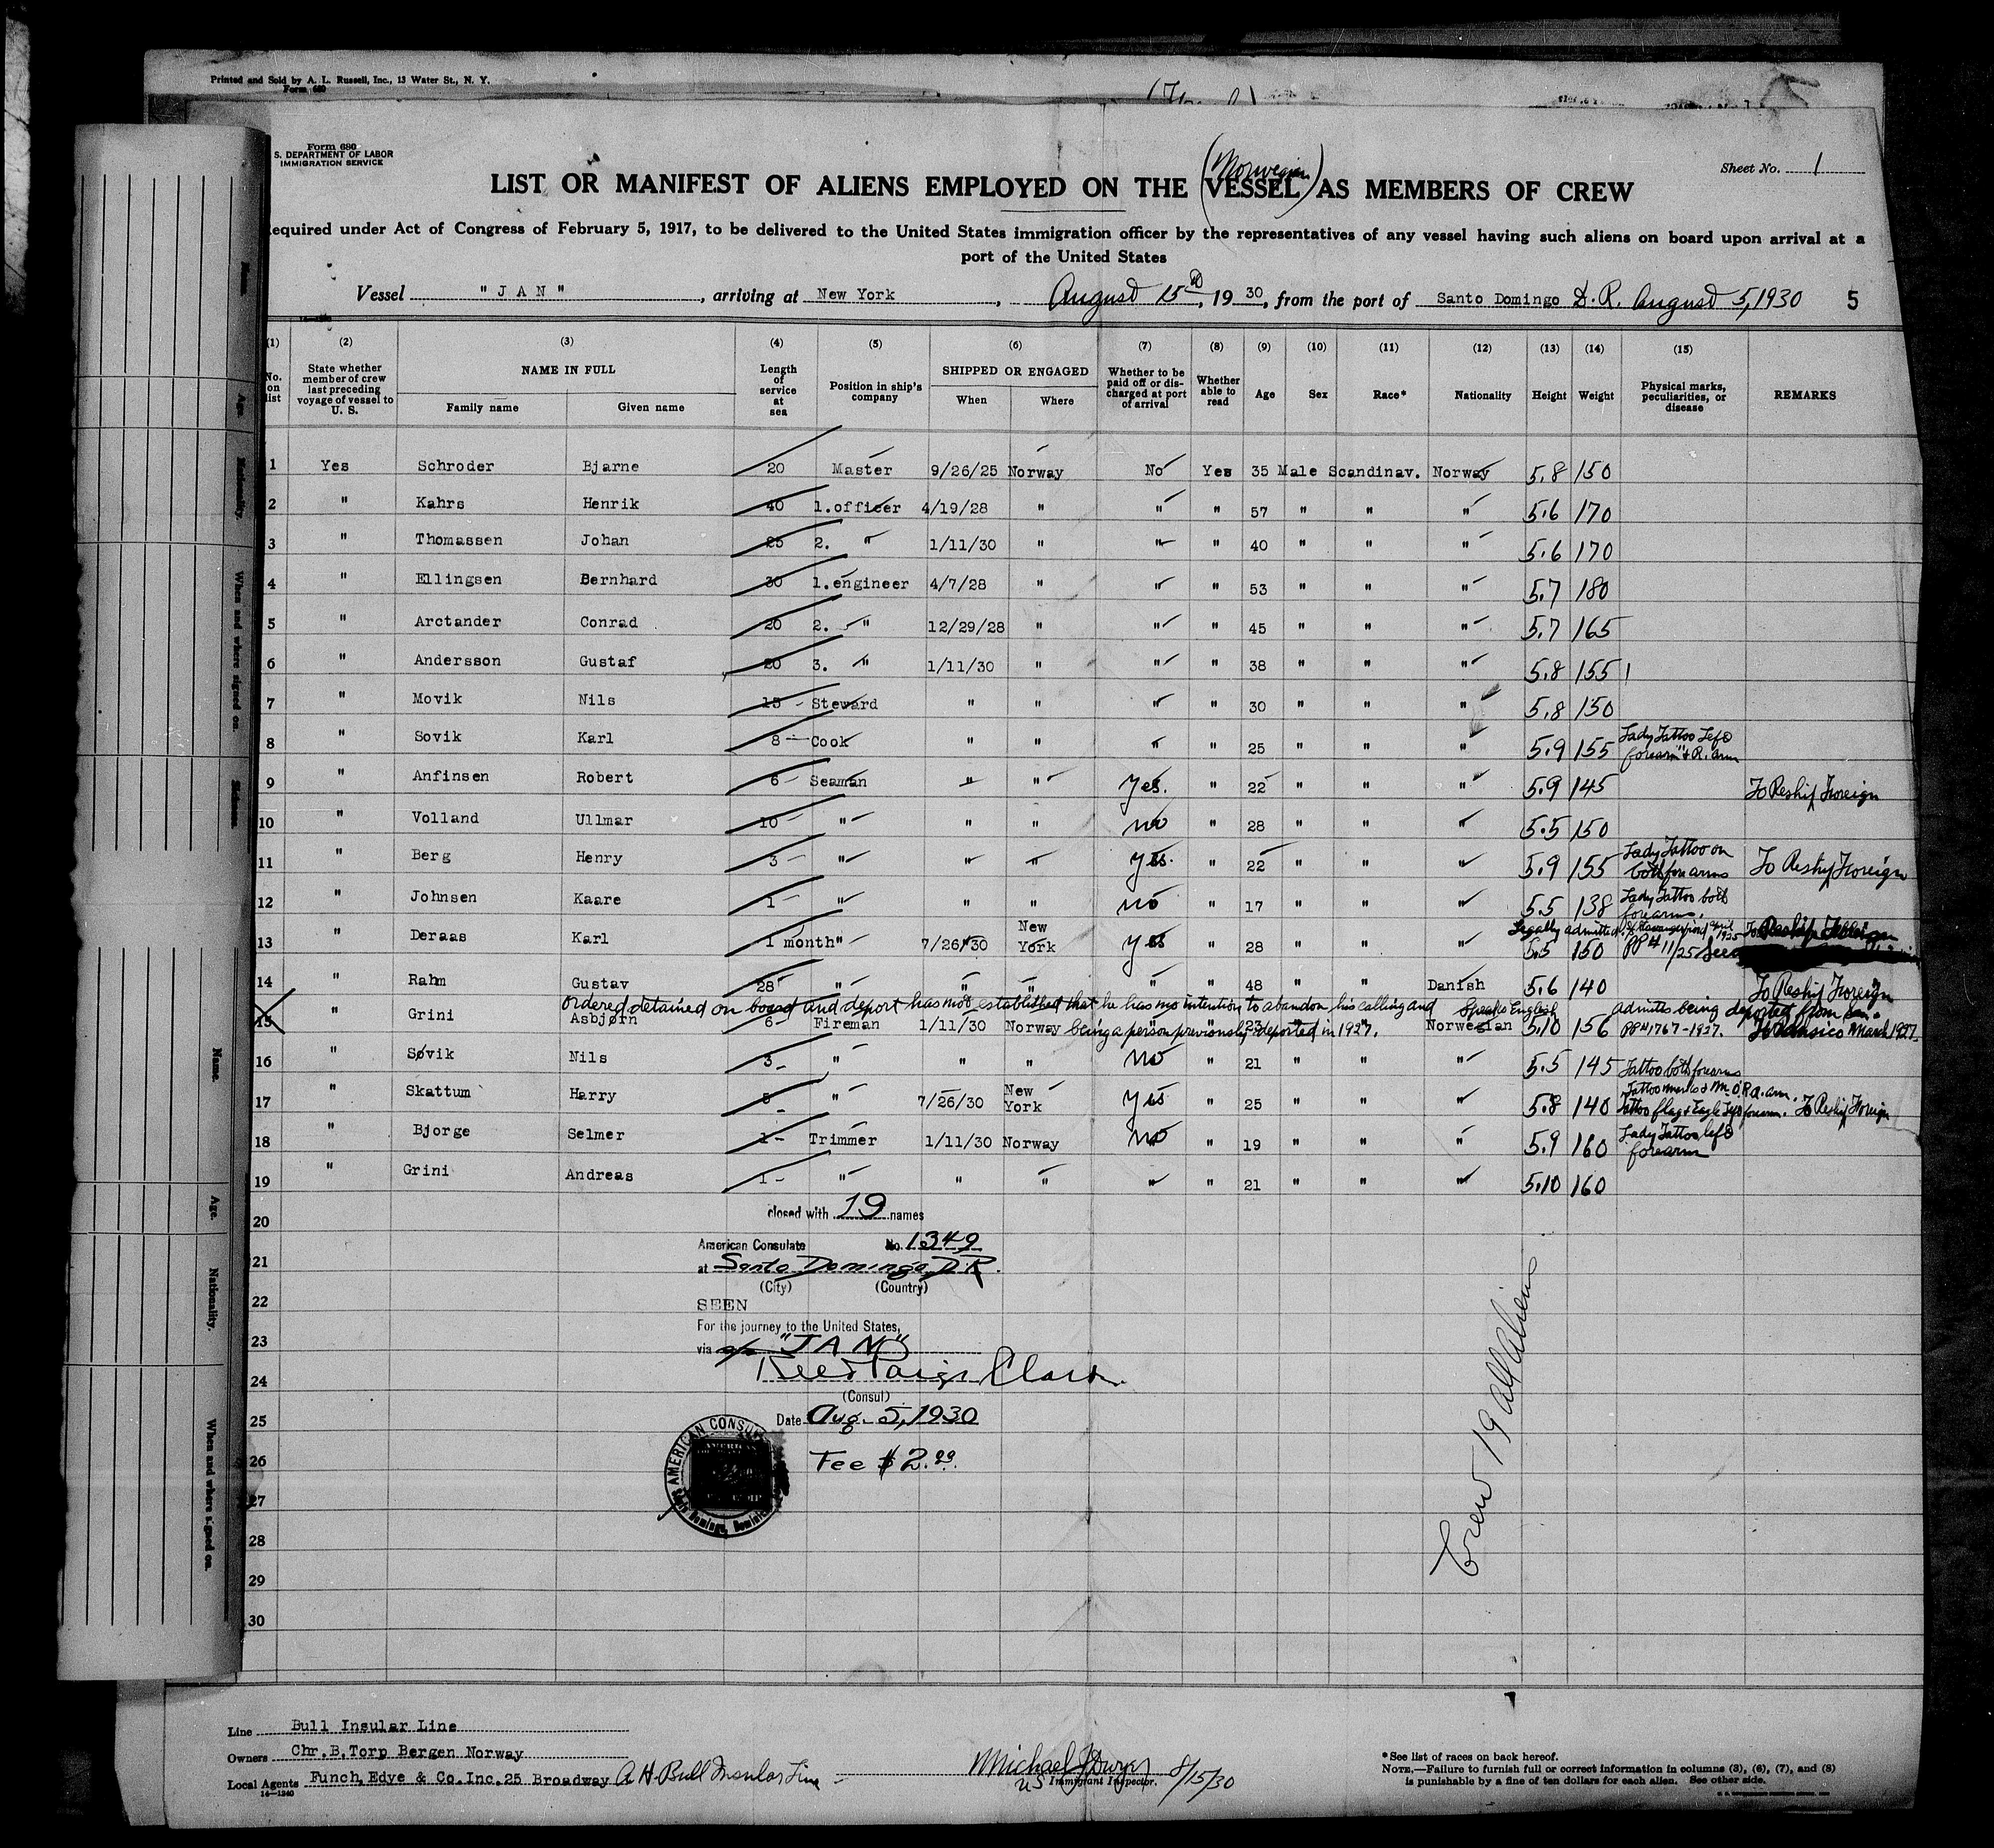 Printed and Sold by A. L. Russell, Inc., 13 Water St., N. Y.
Form 680
Form 680
S. DEPARTMENT OF LABOR
IMMIGRATION SERVICE
Sheet No. 1
(Norwegian)
LIST OR MANIFEST OF ALIENS EMPLOYED ON THE VESSEL AS MEMBERS OF CREW
equired under Act of Congress of February 5, 1917, to be delivered to the United States immigration officer by the representatives of any vessel having such aliens on board upon arrival at a
port of the United States
Vessel "JAN", arriving at New York, August 15th, 1930, from the port of Santo Domingo D.R. August 5, 1930 5
(1) (2) (3) (4) (5) (6) (7) (8) (9) (10) (11) (12) (13) (14) (15)
No. on list State whether member of crew last preceding voyage of vessel to U. S. NAME IN FULL Family name Given name Length of service at sea Position in ship's company SHIPPED OR ENGAGED When Where Whether to be paid off or discharged at port of arrival Whether able to read Age Sex Race* Nationality Height Weight Physical marks, peculiarities, or disease REMARKS
1 Yes Schroder Bjarne 20 Master 9/26/25 Norway No Yes 35 Male Scandinav. Norway 5.8 150
2 " Kahrs Henrik 40 1.officer 4/19/28 " " " 57 " " " 5.6 170
3 " Thomassen Johan 25 2. " 1/11/30 " " " 40 " " " 5.6 170
4 " Ellingsen Bernhard 30 1.engineer 4/7/28 " " " 53 " " " 5.7 180
5 " Arctander Conrad 20 2. " 12/29/28 " " " 45 " " " 5.7 165
6 " Andersson Gustaf 20 3. " 1/11/30 " " " 38 " " " 5.8 155
7 " Movik Nils 15 Steward " " " " 30 " " " 5.8 150
8 " Sovik Karl 8 Cook " " " " 25 " " " 5.9 155 Lady Tattoo Left forearm & R. arm
9 " Anfinsen Robert 6 Seaman " " Yes. " 22 " " " 5.9 145 To Reship Foreign
10 " Volland Ullmar 10 " " " no " 28 " " " 5.5 150
11 " Berg Henry 3 " " " yes. " 22 " " " 5.9 155 Lady Tattoo on both forearms To Reship Foreign
12 " Johnsen Kaare 1 " " " no " 17 " " " 5.5 138 Lady Tattoo both forearms.
13 " Deraas Karl 1 month " 7/26/30 New York yes " 28 " " " 5.5 150 Legally admitted April 1925 To Reship Foreign
14 " Rahm Gustav 28 " " " " " 48 " " Danish 5.6 140 To Reship Foreign
Ordered detained on board and deport has not established that he has no intention to abandon his calling and being a person previously deported in 1927.
15 " Grini Asbjørn 6 Fireman 1/11/30 Norway " " 23 " " Norwegian Speaks English 5.10 156 admits being deported from San Francisco March 1927
16 " Søvik Nils 3 " " " no " 21 " " " 5.5 145 Tattoo both forearms
17 " Skattum Harry 5 " 7/26/30 New York yes " 25 " " " 5.8 140 Tattoo flag & Eagle Left forearm. To Reship Foreign
18 " Bjorge Selmer 1 Trimmer 1/11/30 Norway no " 19 " " " 5.9 160 Lady Tattoo left forearm
19 " Grini Andreas 1 " " " " " 21 " " " 5.10 160
20
21
22
23
24
25
26
27
28
29
30
closed with 19 names
American Consulate No. 1349
at Santo Domingo D.R.
(City) (Country)
SEEN
For the journey to the United States,
via "JAN"
Reed Paige Clark
(Consul)
Date Aug. 5, 1930
Fee $2.00
AMERICAN CONSUL
Crew 19 all aliens
Name.
Age.
Nationality.
When and where signed on.
Name.
Age.
Nationality.
When and where signed on.
Line Bull Insular Line
Owners Chr.B.Torp Bergen Norway
Local Agents Funch,Edye & Co.Inc.25 Broadway A H Bull Insular Line
14—1240
Michael J Dwyer 8/15/30
US Immigrant Inspector.
*See list of races on back hereof.
NOTE.—Failure to furnish full or correct information in columns (3), (6), (7), and (8)
is punishable by a fine of ten dollars for each alien. See other side.